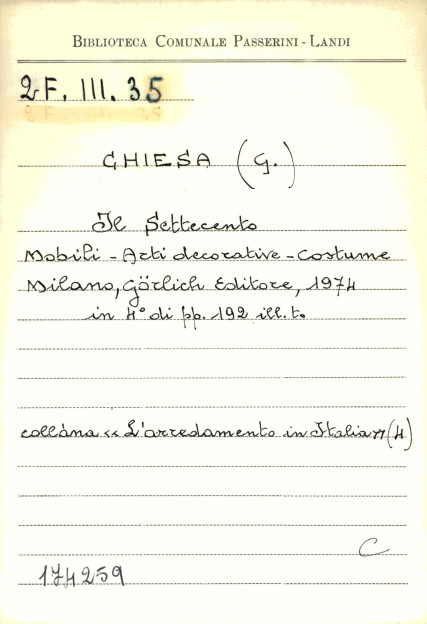 BIBLIOTECA COMUNALE PASSERINI - LANDI
2F. III. 35
2F. III. 35
CHIESA (G.)
Il Settecento
Mobili - Arti decorative - Costume
Milano, Görlich Editore, 1974
in 4° di pp. 192 ill. t.
collana << L'arredamento in Italia >> (4)
C
174259